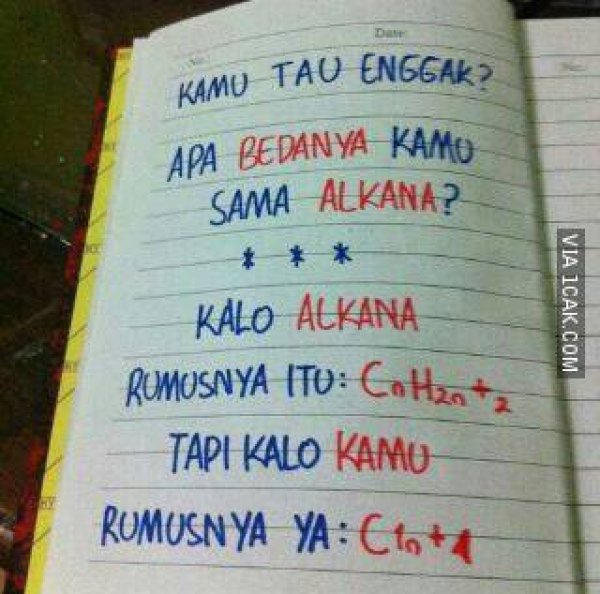 Date:
No.
KAMU TAU ENGGAK?
APA BEDANYA KAMU
SAMA ALKANA?
* * *
KALO ALKANA
RUMUSNYA ITU: CnH2n+2
TAPI KALO KAMU
RUMUSNYA YA: C1n+A
VIA 1CAK.COM